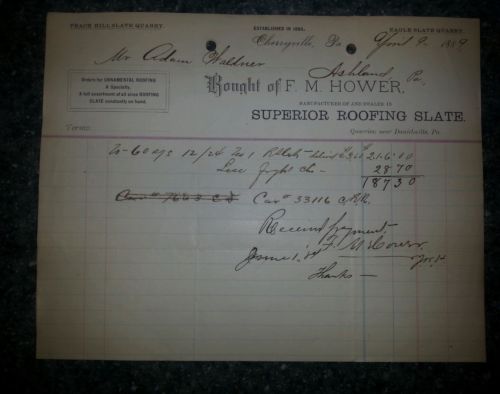 PEACH HILL SLATE QUARRY. ESTABLISHED IN 1865. EAGLE SLATE QUARRY.
Cherryville, Pa April 9 1889
Mr Adam Waldner
Ashland Pa.
Orders for ORNAMENTAL ROOFING
A Specialty.
A full assortment of all sizes ROOFING
SLATE constantly on hand.
Bought of F. M. HOWER,
MANUFACTURER OF AND DEALER IN
SUPERIOR ROOFING SLATE.
Terms: Quarries near Danielsville, Pa.
60 sqs 12/24 No 1 3.60 216.00
Less frght chs - 28 70
187 30
Car # 33116
Received payment
F. M. Hower
Thanks —